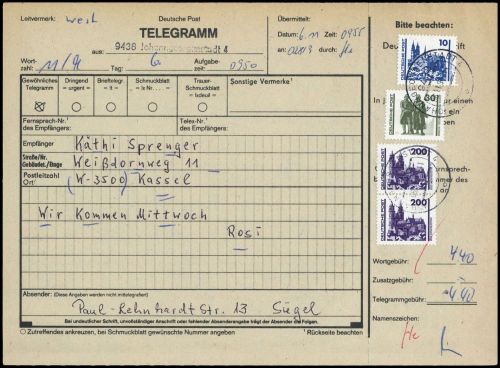 Leitvermerk: west
Deutsche Post
TELEGRAMM
aus: 9438 Johanngeorgenstadt 4
Übermittelt:
Datum: 6.11 Zeit: 0955
an: durch:
Bitte beachten:
Wort-
zahl: 11/9 Tag: 6. Aufgabe-
zeit: 0950
Gewöhnliches
Telegramm
Dringend
– urgent –
Brieftelegr.
– lt –
Schmuckblatt
– lx Nr.¹ –
Trauer-
Schmuckblatt
– lxdeuil –
Sonstige Vermerke¹
Fernsprech-Nr.¹
des Empfängers:
Telex-Nr.¹
des Empfängers:
Empfänger Käthi Sprenger
Straße/Nr.
Gebäudet./Etage Weißdornweg 11
Postleitzahl
Ort¹ (W-3500) Kassel
Wir Kommen Mittwoch
Rosi
Absender: (Diese Angaben werden nicht mittelegrafiert)
Paul-Lehnhardt Str. 13 Sügel
Bei undeutlicher Schrift, unvollständiger Anschrift oder fehlender Absenderangabe trägt der Absender die Folgen.
Zutreffendes ankreuzen, bei Schmuckblatt gewünschte Nummer angeben
¹ Rückseite beachten
10
DEUTSCHE POST
30
DEUTSCHE POST
200
DEUTSCHE POST
200
DEUTSCHE POST
Wortgebühr: 440
Zusatzgebühr:
Telegrammgebühr: 440
Namenszeichen:
He